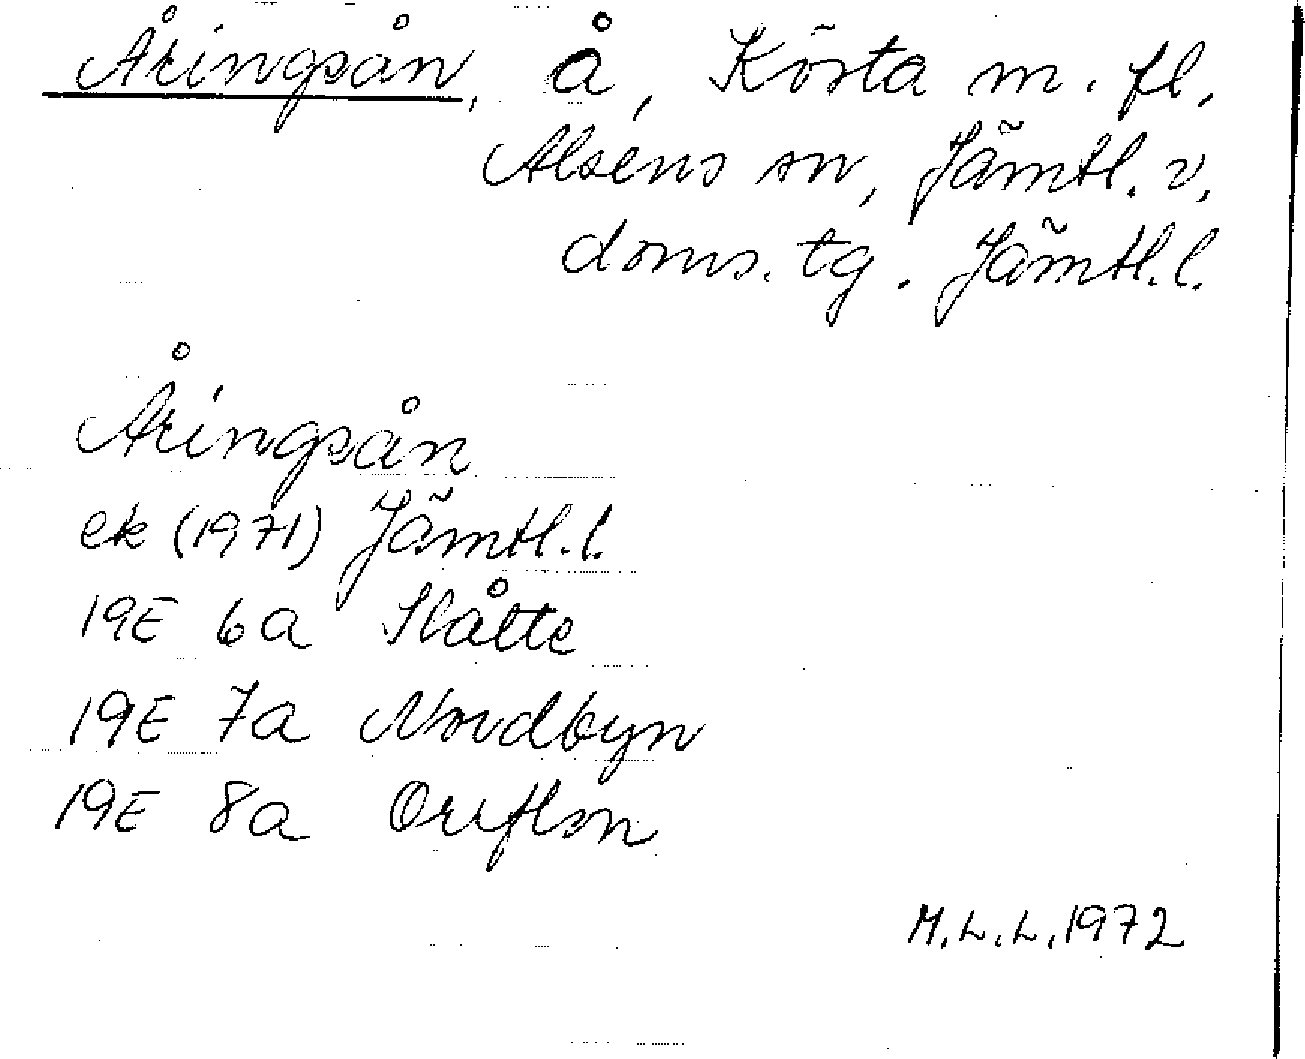 Åringsån, å, Kösta m. fl,
Alsens sn, Jämtl. v.
doms. tg. Jämtl. l.
Åringsån
ek (1971) Jämtl. l.
19E 6a Slåtte
19E 7a Nordbyn
19E 8a Oruflon
M.L.L. 1972